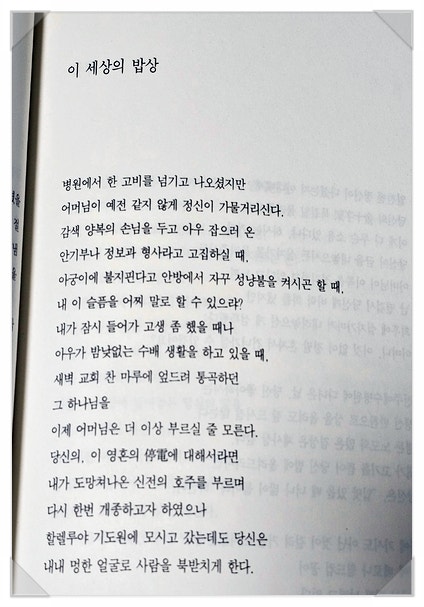 이 세상의 밥상
병원에서 한 고비를 넘기고 나오셨지만
어머님이 예전 같지 않게 정신이 가물거리신다.
감색 양복의 손님을 두고 아우 잡으러 온
안기부나 정보과 형사라고 고집하실 때,
아궁이에 불지핀다고 안방에서 자꾸 성냥불을 켜시곤 할 때,
내 이 슬픔을 어찌 말로 할 수 있으랴?
내가 잠시 들어가 고생 좀 했을 때나
아우가 밤낮없는 수배 생활을 하고 있을 때,
새벽 교회 찬 마루에 엎드려 통곡하던
그 하나님을
이제 어머님은 더 이상 부르실 줄 모른다.
당신의, 이 영혼의 停電에 대해서라면
내가 도망쳐나온 신전의 호주를 부르며
다시 한번 개종하고자 하였으나
할렐루야 기도원에 모시고 갔는데도 당신은
내내 멍한 얼굴로 사람을 북받치게 한다.